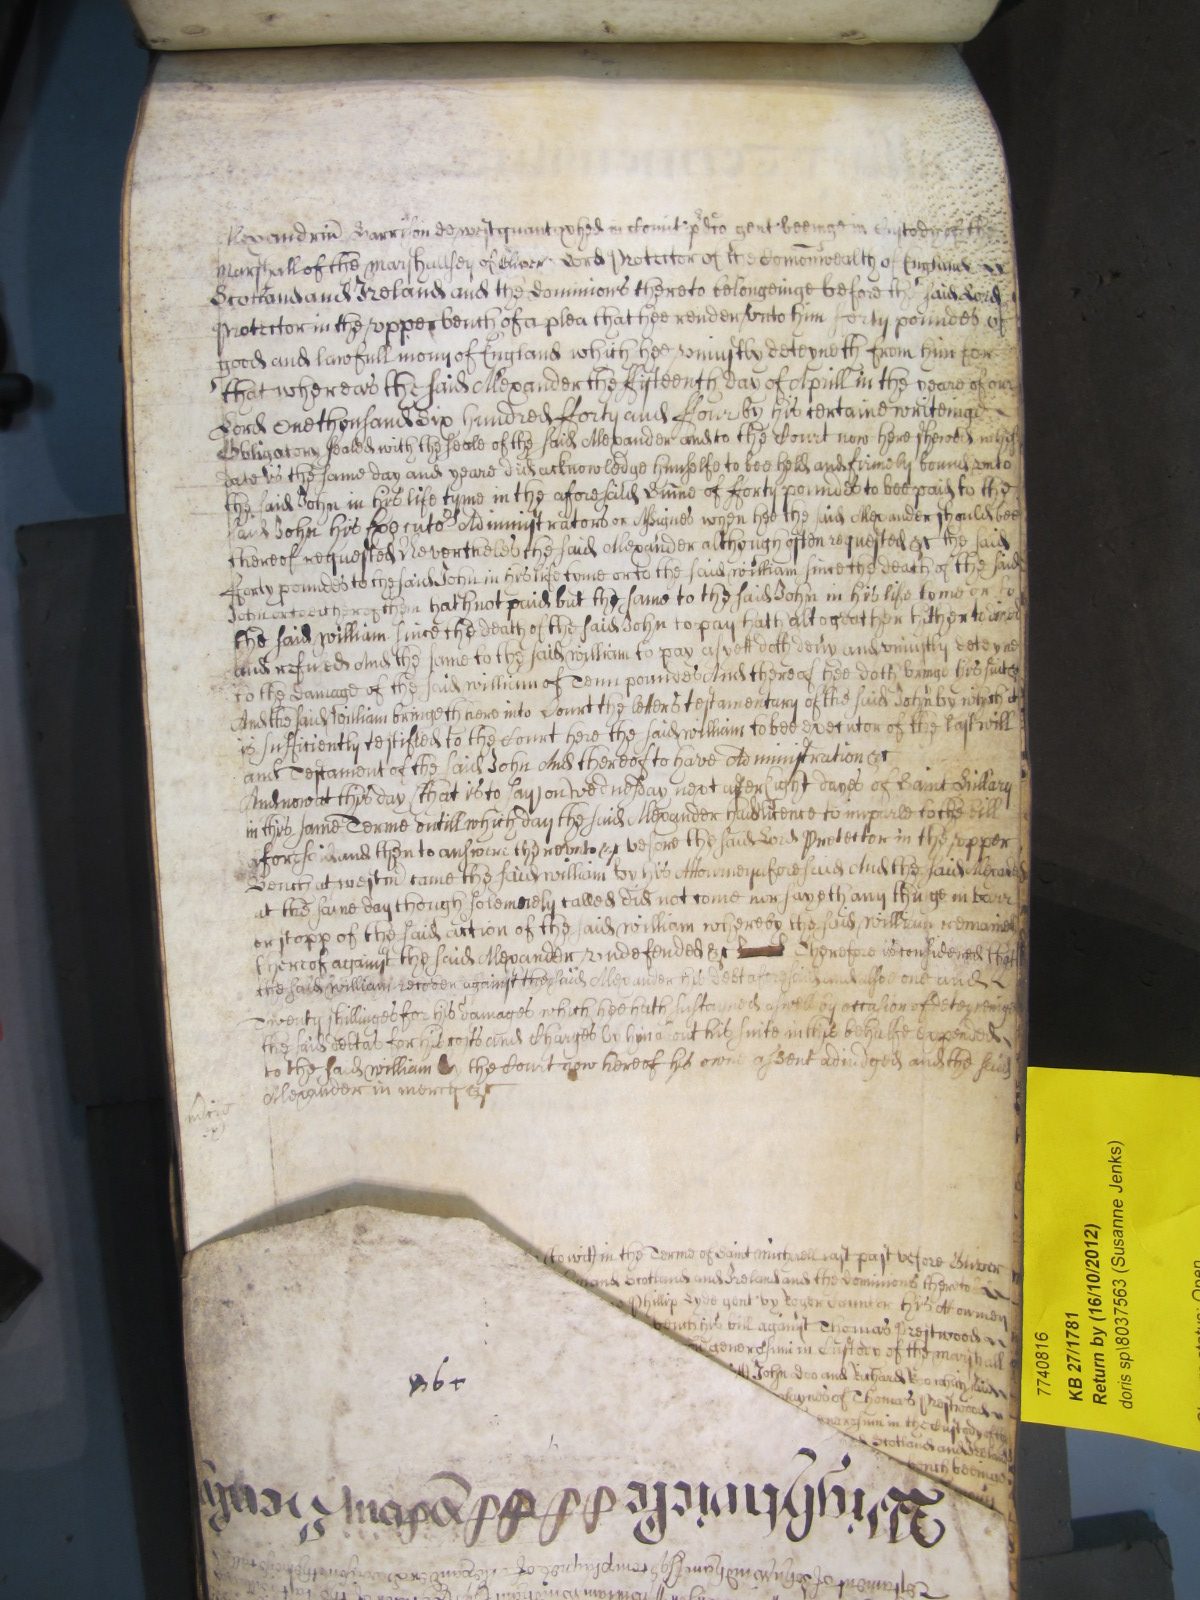 Alexandrum Harrison de Westquantoxhed in Comit pdco gent beeinge in Custody of the
Marshall of the Marshallsey of Oliver Lord Protector of the Comonwealth of England
Scotland and Ireland and the Dominions thereto belongeinge before the said Lord
Protector in the vpper bench of a plea that hee render vnto him forty poundes of
good and lawfull mony of England which hee vniustly deteyneth from him for
that whereas the said Alexander the ffyfteenth day of Aprill in the yeare of our
Lord One thousand Six hundred fforty and ffour by his certaine writeinge
Obligatory sealed with the seale of the said Alexander and to the Court now here shewed whose
date is the same day and yeare did acknowledge himselfe to bee held and firmely bound vnto
the said John in his life tyme in the aforesaid Sume of fforty poundes to bee paid to the
said John his Executors Administrators or Assignes when hee the said Alexander should bee
thereof requested Neverthelesse the said Alexander although often requested &c the said
fforty poundes to the said John in his life tyme or to the said William since the death of the said
John or to either of them hath not paid but the same to the said John in his life tyme or to
the said William since the death of the said John to pay hath altogeather hitherto denied
and refused And the same to the said William to pay as yett doth deny and vniustly deteyne
to the damage of the said William of Tenn poundes And thereof hee doth bringe his suite
And the said William bringeth here into Court the letters testamentary of the said John by which it
is sufficiently testified to the Court here the said William to bee executor of the last will
and Testament of the said John And thereof to have Administration &c
And now at this day (that is to say) on Wednesday next after Eight dayes of Saint Hillary
in this same Terme vntill which day the said Alexander had licence to imparle to the bill
aforesaid and then to answere therevnto &c before the said Lord Protector in the vpper
Bench at Westm came the said William by his Attorney aforesaid And the said Alexander
at the same day though solemnely called did not come nor sayeth any thinge in barr
or stopp of the said action of the said William whereby the said William remaines
thereof against the said Alexander vndefended &c Therefore it is considered that
the said William recover against the said Alexander his debt aforesaid and alsoe one and
Twenty shillinges for his damages which hee hath susteyned aswell by occasion of deteyneinge
the said debt as for his costs and charges by him about his suite in this behalfe expended
to the said William by the Court now here of his owne assent adiudged and the said
Alexander in mercy &c
(to witt) in the Terme of Saint Michaell last past before Oliver
Scotland and Ireland and the Dominions thereto
Phillip Lyde gent by Roger Hunter his Attorney
bench his bill against Thomas Prestwood
generosum in Custody of the Marshall
John Doo and Richard Roo
of Thomas Prestwood
generosum in the Custody of the
Scotland and Ireland
bench
Wightwicke
7740816
KB 27/1781
Return by (16/10/2012)
doris sp\8037563 (Susanne Jenks)
status: Open